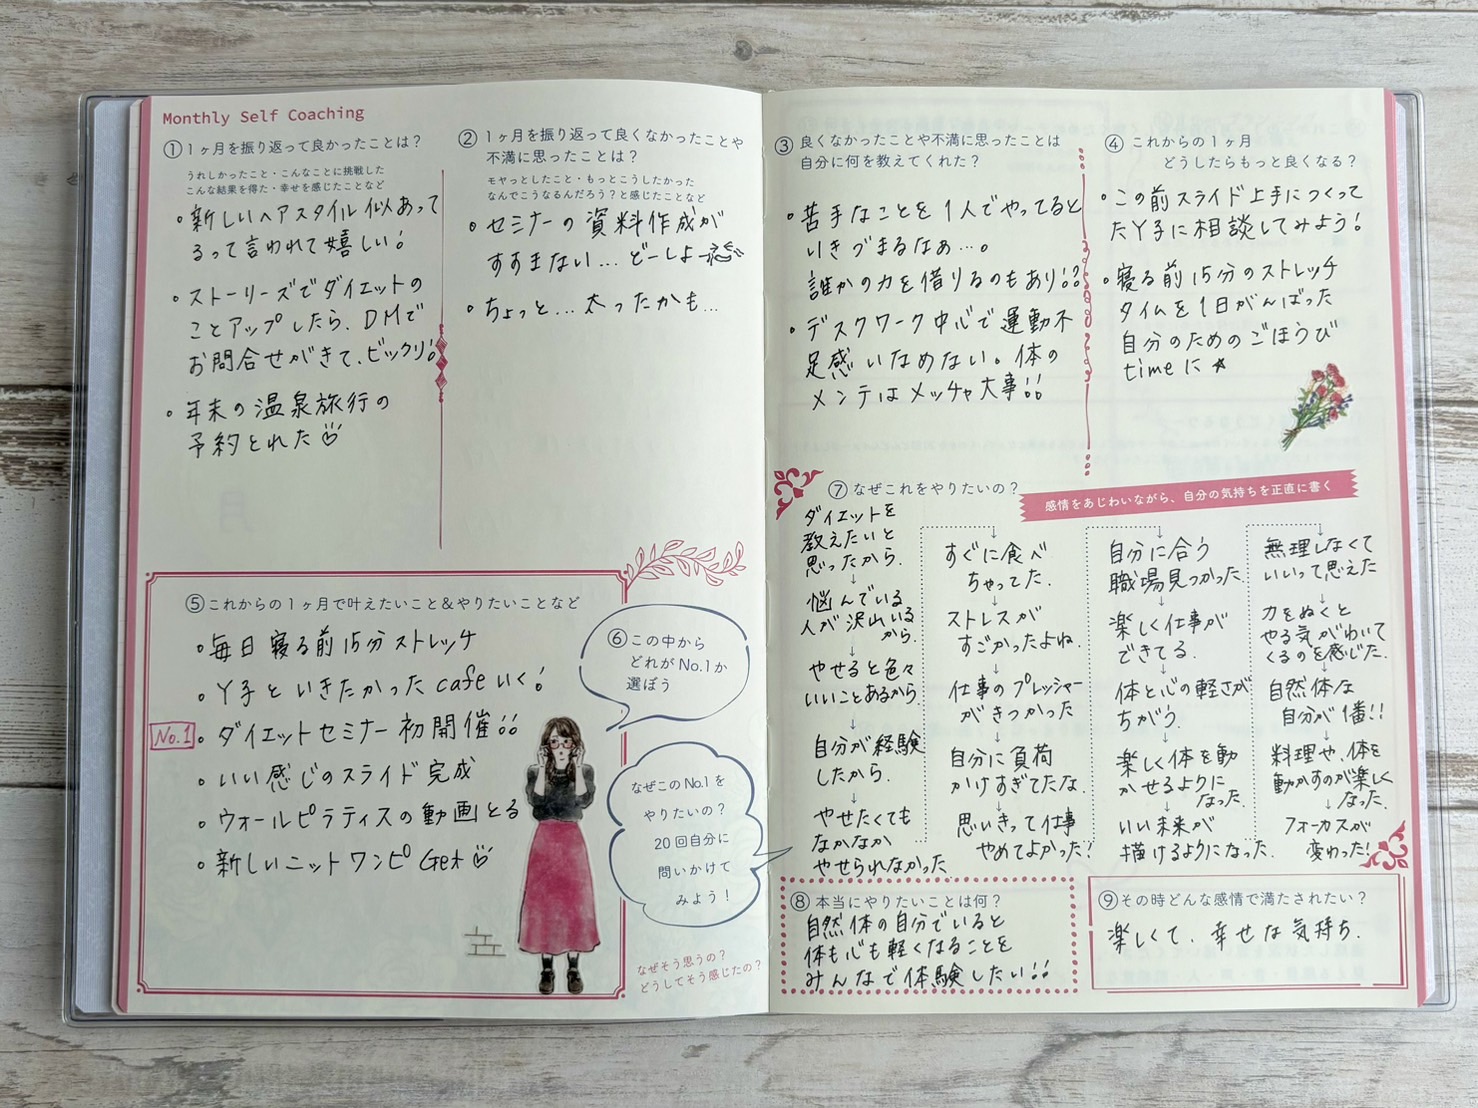 Monthly Self Coaching
①1ヶ月を振り返って良かったことは？
うれしかったこと・こんなことに挑戦した
こんな結果を得た・幸せを感じたことなど
・新しいヘアスタイル似あって
るって言われて嬉しい！
・ストーリーズでダイエットの
ことアップしたら、DMで
お問合せがきて、ビックリ！
・年末の温泉旅行の
予約とれた
②1ヶ月を振り返って良くなかったことや
不満に思ったことは？
モヤっとしたこと・もっとこうしたかった
なんでこうなるんだろう？と感じたことなど
・セミナーの資料作成が
すすまない…どーしよー
・ちょっと…太ったかも…
③良くなかったことや不満に思ったことは
自分に何を教えてくれた？
・苦手なことを1人でやってると
いきづまるなぁ…。
誰かの力を借りるのもあり!?
・デスクワーク中心で運動不
足感いなめない。体の
メンテはメッチャ大事!!
④これからの1ヶ月
どうしたらもっと良くなる？
・この前スライド上手につくって
たY子に相談してみよう！
・寝る前15分のストレッチ
タイムを1日がんばった
自分のためのごほうび
timeに☆
⑤これからの1ヶ月で叶えたいこと＆やりたいことなど
・毎日寝る前15分ストレッチ
・Y子といきたかったcafeいく！
No.1
・ダイエットセミナー初開催!!
・いい感じのスライド完成
・ウォールピラティスの動画とる
・新しいニットワンピGet
⑥この中から
どれがNo.1か
選ぼう
なぜこのNo.1を
やりたいの？
20回自分に
問いかけて
みよう！
なぜそう思うの？
どうしてそう感じたの？
⑦なぜこれをやりたいの？
感情をあじわいながら、自分の気持ちを正直に書く
ダイエットを
教えたいと
思ったから。
↓
悩んでいる
人が沢山いる
から。
↓
やせると色々
いいことあるから
↓
自分が経験
したから。
↓
やせたくても
なかなか
やせられなかった
すぐに食べ
ちゃってた。
↓
ストレスが
すごかったよね。
↓
仕事のプレッシャー
がきつかった
↓
自分に負荷
かけすぎてたな。
↓
思いきって仕事
やめてよかった！
自分に合う
職場見つかった。
↓
楽しく仕事が
できてる。
↓
体と心の軽さが
ちがう。
↓
楽しく体を動
かせるように
なった。
↓
いい未来が
描けるようになった。
無理しなくて
いいって思えた
↓
力をぬくと
やる気がわいて
くるのを感じた。
↓
自然体な
自分が1番!!
↓
料理や、体を
動かすのが楽しく
なった。
↓
フォーカスが
変わった！
⑧本当にやりたいことは何？
自然体の自分でいると
体も心も軽くなることを
みんなで体験したい!!
⑨その時どんな感情で満たされたい？
楽しくて、幸せな気持ち。